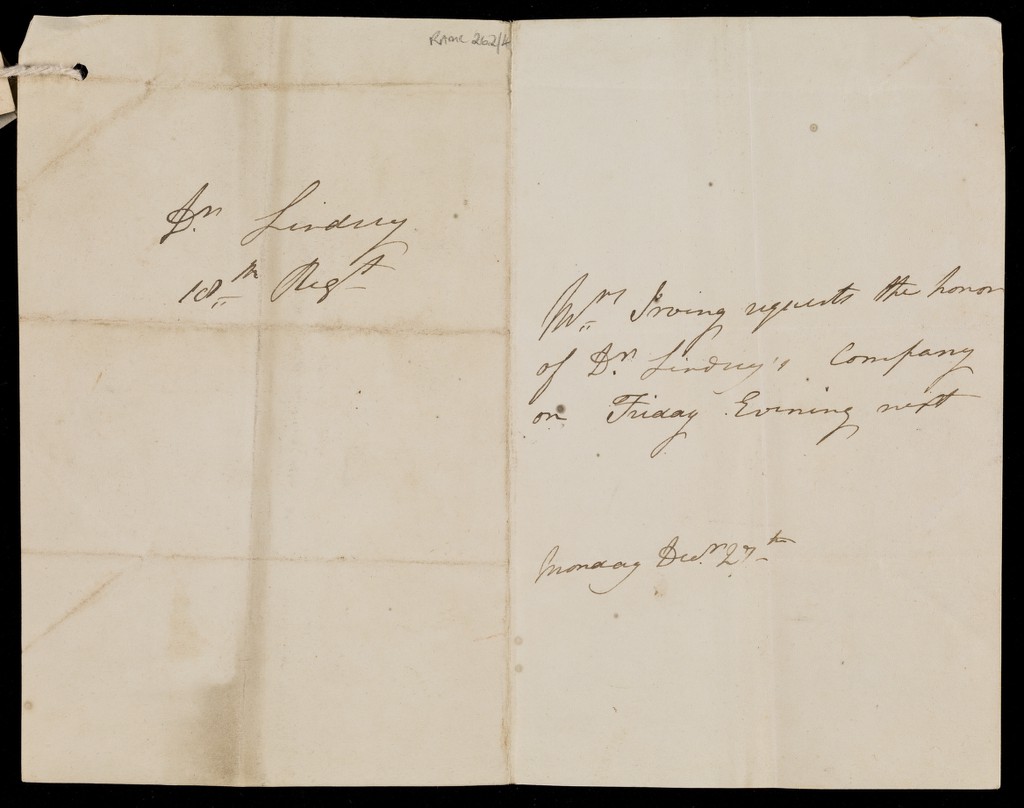 RAMC 262/4
Dr. Lindsey
18th Regt
Mrs Irving requests the honor
of Dr. Lindsey's Company
on Friday Evening next
Monday Decr. 27th